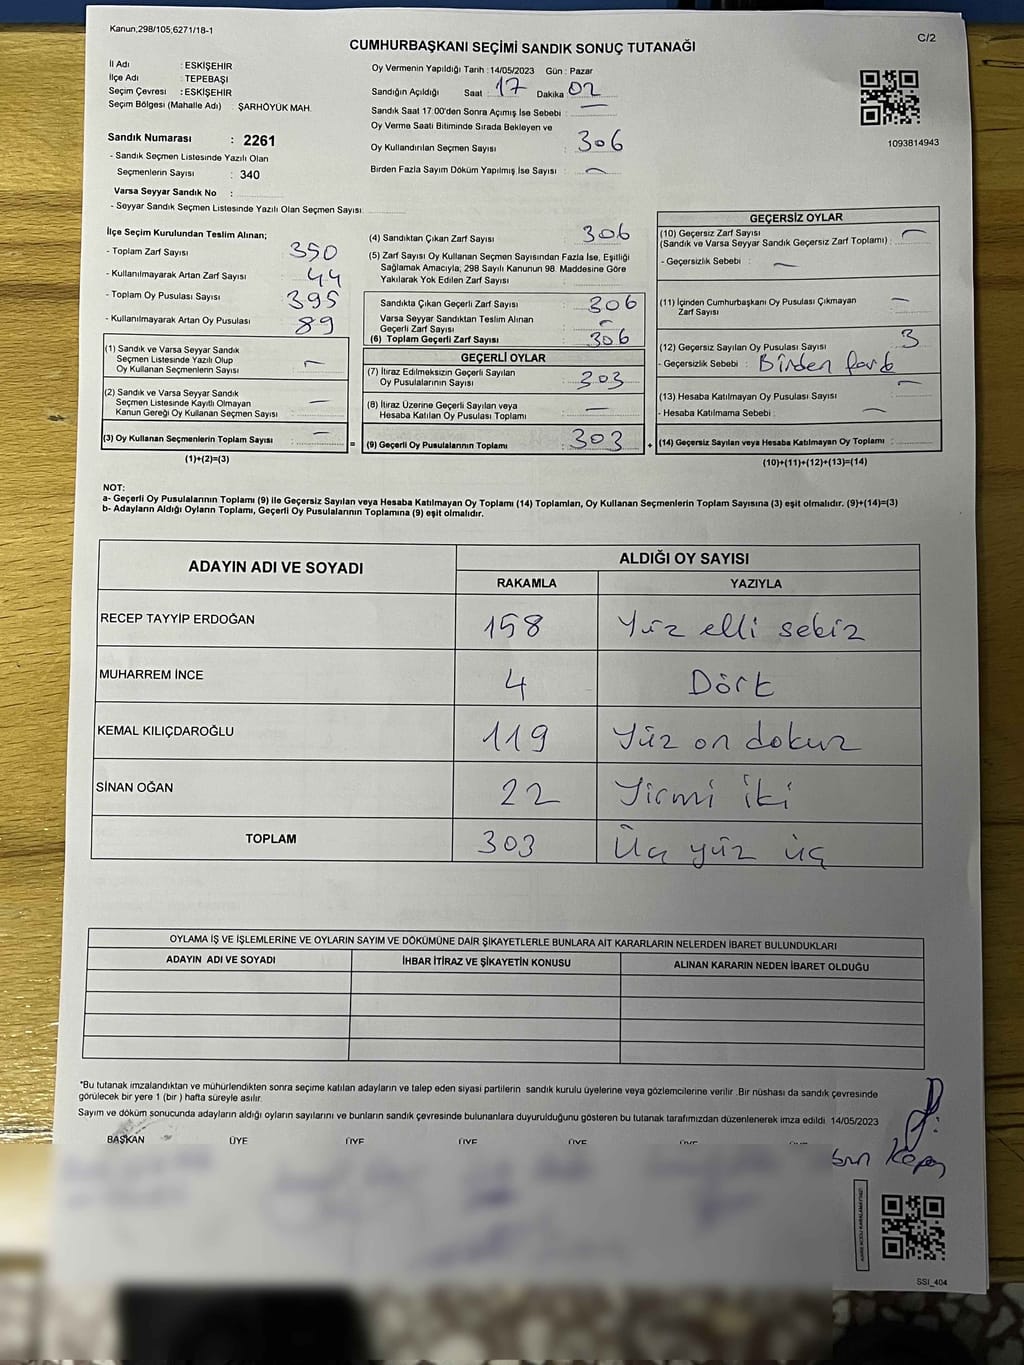 Kanun;298/105;6271/18-1
C/2
CUMHURBAŞKANI SEÇİMİ SANDIK SONUÇ TUTANAĞI
İl Adı : ESKİŞEHİR
İlçe Adı : TEPEBAŞI
Seçim Çevresi : ESKİŞEHİR
Seçim Bölgesi (Mahalle Adı) : ŞARHÖYÜK MAH.
Sandık Numarası : 2261
- Sandık Seçmen Listesinde Yazılı Olan
Seçmenlerin Sayısı : 340
Varsa Seyyar Sandık No :
- Seyyar Sandık Seçmen Listesinde Yazılı Olan Seçmen Sayısı:
Oy Vermenin Yapıldığı Tarih : 14/05/2023 Gün : Pazar
Sandığın Açıldığı Saat : 17 Dakika : 02
Sandık Saat 17:00'den Sonra Açımış İse Sebebi : —
Oy Verme Saati Bitiminde Sırada Bekleyen ve
Oy Kullandırılan Seçmen Sayısı : 306
Birden Fazla Sayım Döküm Yapılmış İse Sayısı : —
1093814943
İlçe Seçim Kurulundan Teslim Alınan;
- Toplam Zarf Sayısı : 350
- Kullanılmayarak Artan Zarf Sayısı : 44
- Toplam Oy Pusulası Sayısı : 395
- Kullanılmayarak Artan Oy Pusulası : 89
(1) Sandık ve Varsa Seyyar Sandık
Seçmen Listesinde Yazılı Olup
Oy Kullanan Seçmenlerin Sayısı : —
(2) Sandık ve Varsa Seyyar Sandık
Seçmen Listesinde Kayıtlı Olmayan
Kanun Gereği Oy Kullanan Seçmen Sayısı : —
(3) Oy Kullanan Seçmenlerin Toplam Sayısı : —
(1)+(2)=(3)
=
(4) Sandıktan Çıkan Zarf Sayısı : 306
(5) Zarf Sayısı Oy Kullanan Seçmen Sayısından Fazla İse, Eşitliği
Sağlamak Amacıyla; 298 Sayılı Kanunun 98. Maddesine Göre
Yakılarak Yok Edilen Zarf Sayısı :
Sandıkta Çıkan Geçerli Zarf Sayısı : 306
Varsa Seyyar Sandıktan Teslim Alınan
Geçerli Zarf Sayısı : —
(6) Toplam Geçerli Zarf Sayısı : 306
GEÇERLİ OYLAR
(7) İtiraz Edilmeksizin Geçerli Sayılan
Oy Pusulalarının Sayısı : 303
(8) İtiraz Üzerine Geçerli Sayılan veya
Hesaba Katılan Oy Pusulası Toplamı : —
(9) Geçerli Oy Pusulalarının Toplamı : 303
+
GEÇERSİZ OYLAR
(10) Geçersiz Zarf Sayısı
(Sandık ve Varsa Seyyar Sandık Geçersiz Zarf Toplamı) : —
- Geçersizlik Sebebi : —
(11) İçinden Cumhurbaşkanı Oy Pusulası Çıkmayan
Zarf Sayısı : —
(12) Geçersiz Sayılan Oy Pusulası Sayısı : 3
- Geçersizlik Sebebi : Birden
(13) Hesaba Katılmayan Oy Pusulası Sayısı : —
- Hesaba Katılmama Sebebi : —
(14) Geçersiz Sayılan veya Hesaba Katılmayan Oy Toplamı :
(10)+(11)+(12)+(13)=(14)
NOT:
a- Geçerli Oy Pusulalarının Toplamı (9) ile Geçersiz Sayılan veya Hesaba Katılmayan Oy Toplamı (14) Toplamları, Oy Kullanan Seçmenlerin Toplam Sayısına (3) eşit olmalıdır. (9)+(14)=(3)
b- Adayların Aldığı Oyların Toplamı, Geçerli Oy Pusulalarının Toplamına (9) eşit olmalıdır.
ADAYIN ADI VE SOYADI
ALDIĞI OY SAYISI
RAKAMLA YAZIYLA
RECEP TAYYİP ERDOĞAN 158 Yüz elli sekiz
MUHARREM İNCE 4 Dört
KEMAL KILIÇDAROĞLU 119 Yüz on dokuz
SİNAN OĞAN 22 Yirmi iki
TOPLAM 303 Üç yüz üç
OYLAMA İŞ VE İŞLEMLERİNE VE OYLARIN SAYIM VE DÖKÜMÜNE DAİR ŞİKAYETLERLE BUNLARA AİT KARARLARIN NELERDEN İBARET BULUNDUKLARI
ADAYIN ADI VE SOYADI İHBAR İTİRAZ VE ŞİKAYETİN KONUSU ALINAN KARARIN NEDEN İBARET OLDUĞU
*Bu tutanak imzalandıktan ve mühürlendikten sonra seçime katılan adayların ve talep eden siyasi partilerin sandık kurulu üyelerine veya gözlemcilerine verilir. Bir nüshası da sandık çevresinde
görülecek bir yere 1 (bir ) hafta süreyle asılır.
Sayım ve döküm sonucunda adayların aldığı oyların sayılarını ve bunların sandık çevresinde bulunanlara duyurulduğunu gösteren bu tutanak tarafımızdan düzenlenerek imza edildi. 14/05/2023
BAŞKAN ÜYE ÜYE ÜYE ÜYE ÜYE
SSI_404